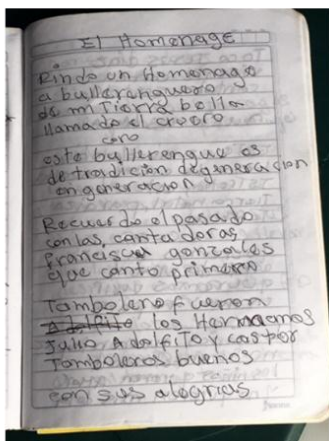 El Homenage
Rindo un Homenage
a bullerenguero
de mi Tierra bella
llamado el cruoro
coro
este bullerengue es
de tradicion degeneracion
en generacion
Recuerdo el pasado
con las, canta doras,
Francisca gonzales
que canto primero
Tambolero fueron
Adolfito los Hermamos
Julio Adolfito y castor
Tamboleros buenos
con sus alegrias